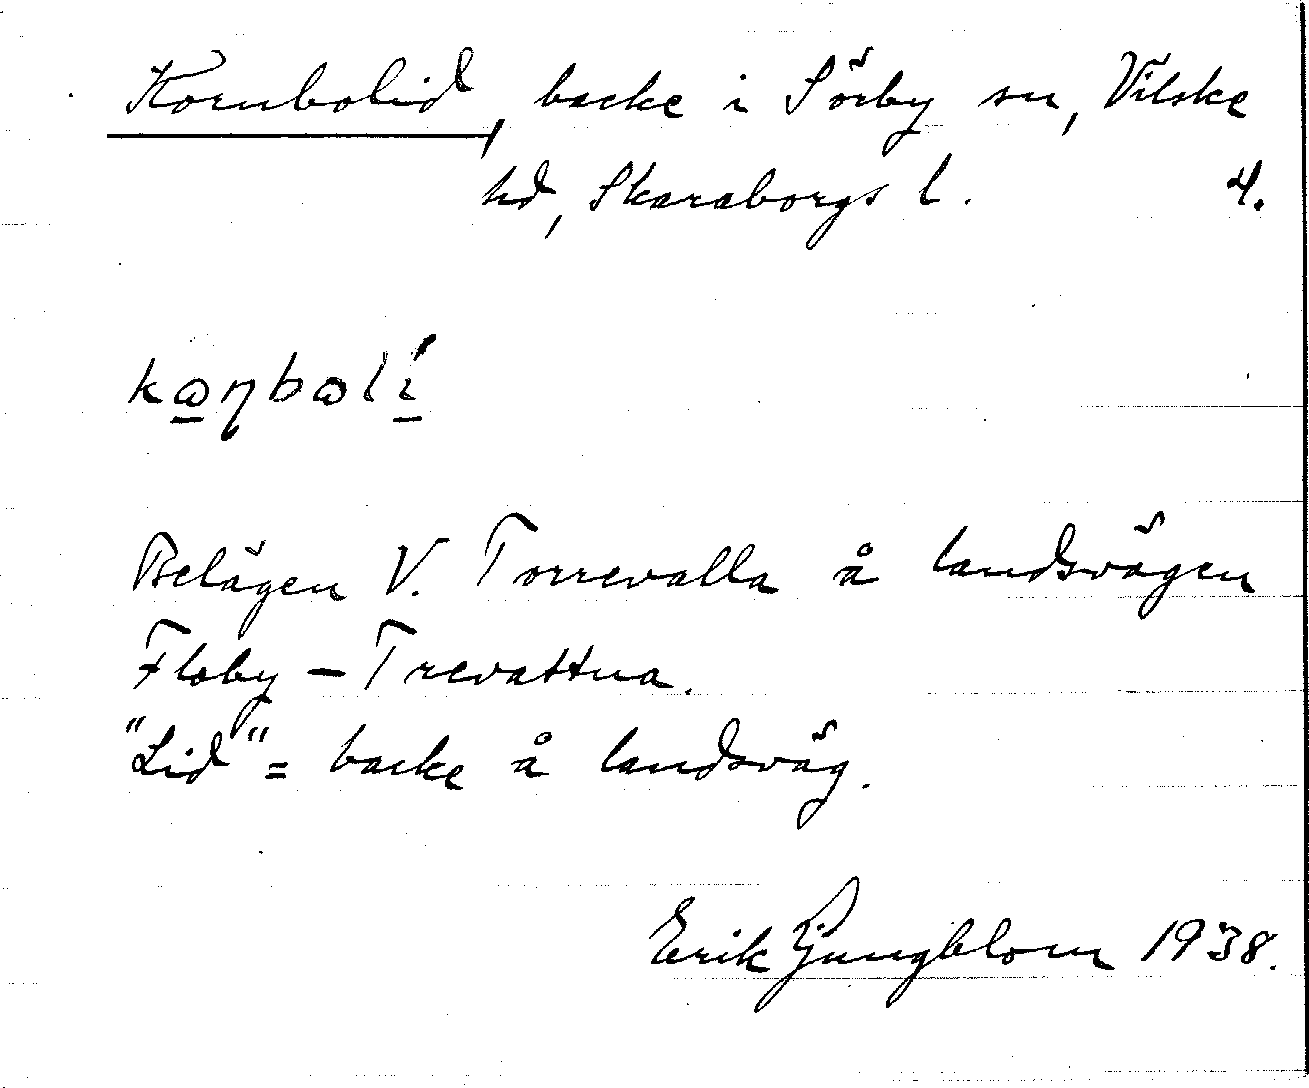 Kornbolid, backe i Sörby sn, Vilske
hd, Skaraborgs l. 4.
kɷŋbɷlí
Belägen V. Torrevalla å landsvägen
Floby – Trevattna.
"Lid" = backe å landsväg.
Erik Ljungblom 1938.